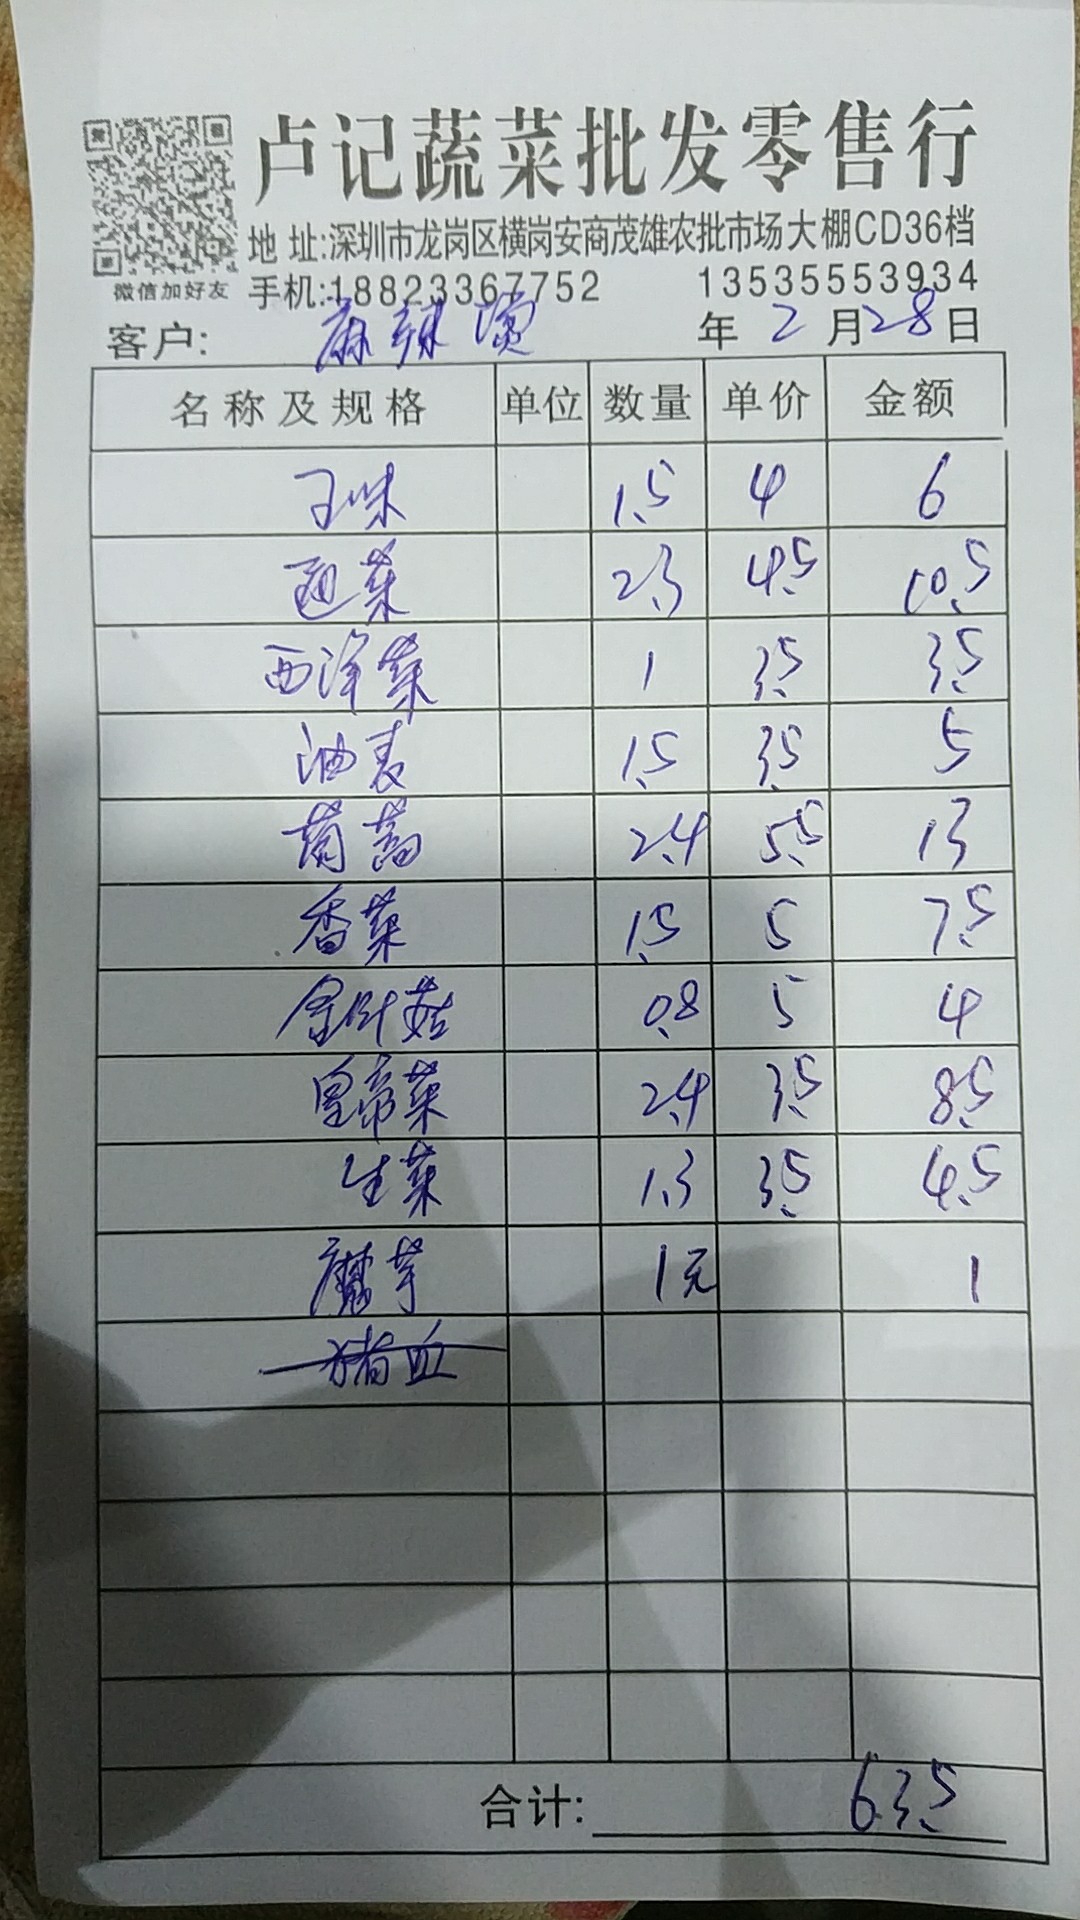 卢记蔬菜批发零售行
地址:深圳市龙岗区横岗安商茂雄农批市场大棚CD36档
微信加好友 手机:18823367752 13535553934
客户: 麻辣烫 年 2 月 28 日
名称及规格 单位 数量 单价 金额
1.5 4 6
菜 2.3 4.5 10.5
西洋菜 1 3.5 3.5
油麦 1.5 3.5 5
茼蒿 2.4 5.5 13
香菜 1.5 5 7.5
金针菇 0.8 5 4
皇帝菜 2.4 3.5 8.5
生菜 1.3 3.5 4.5
魔芋 1元 1
猪血
合计: 63.5